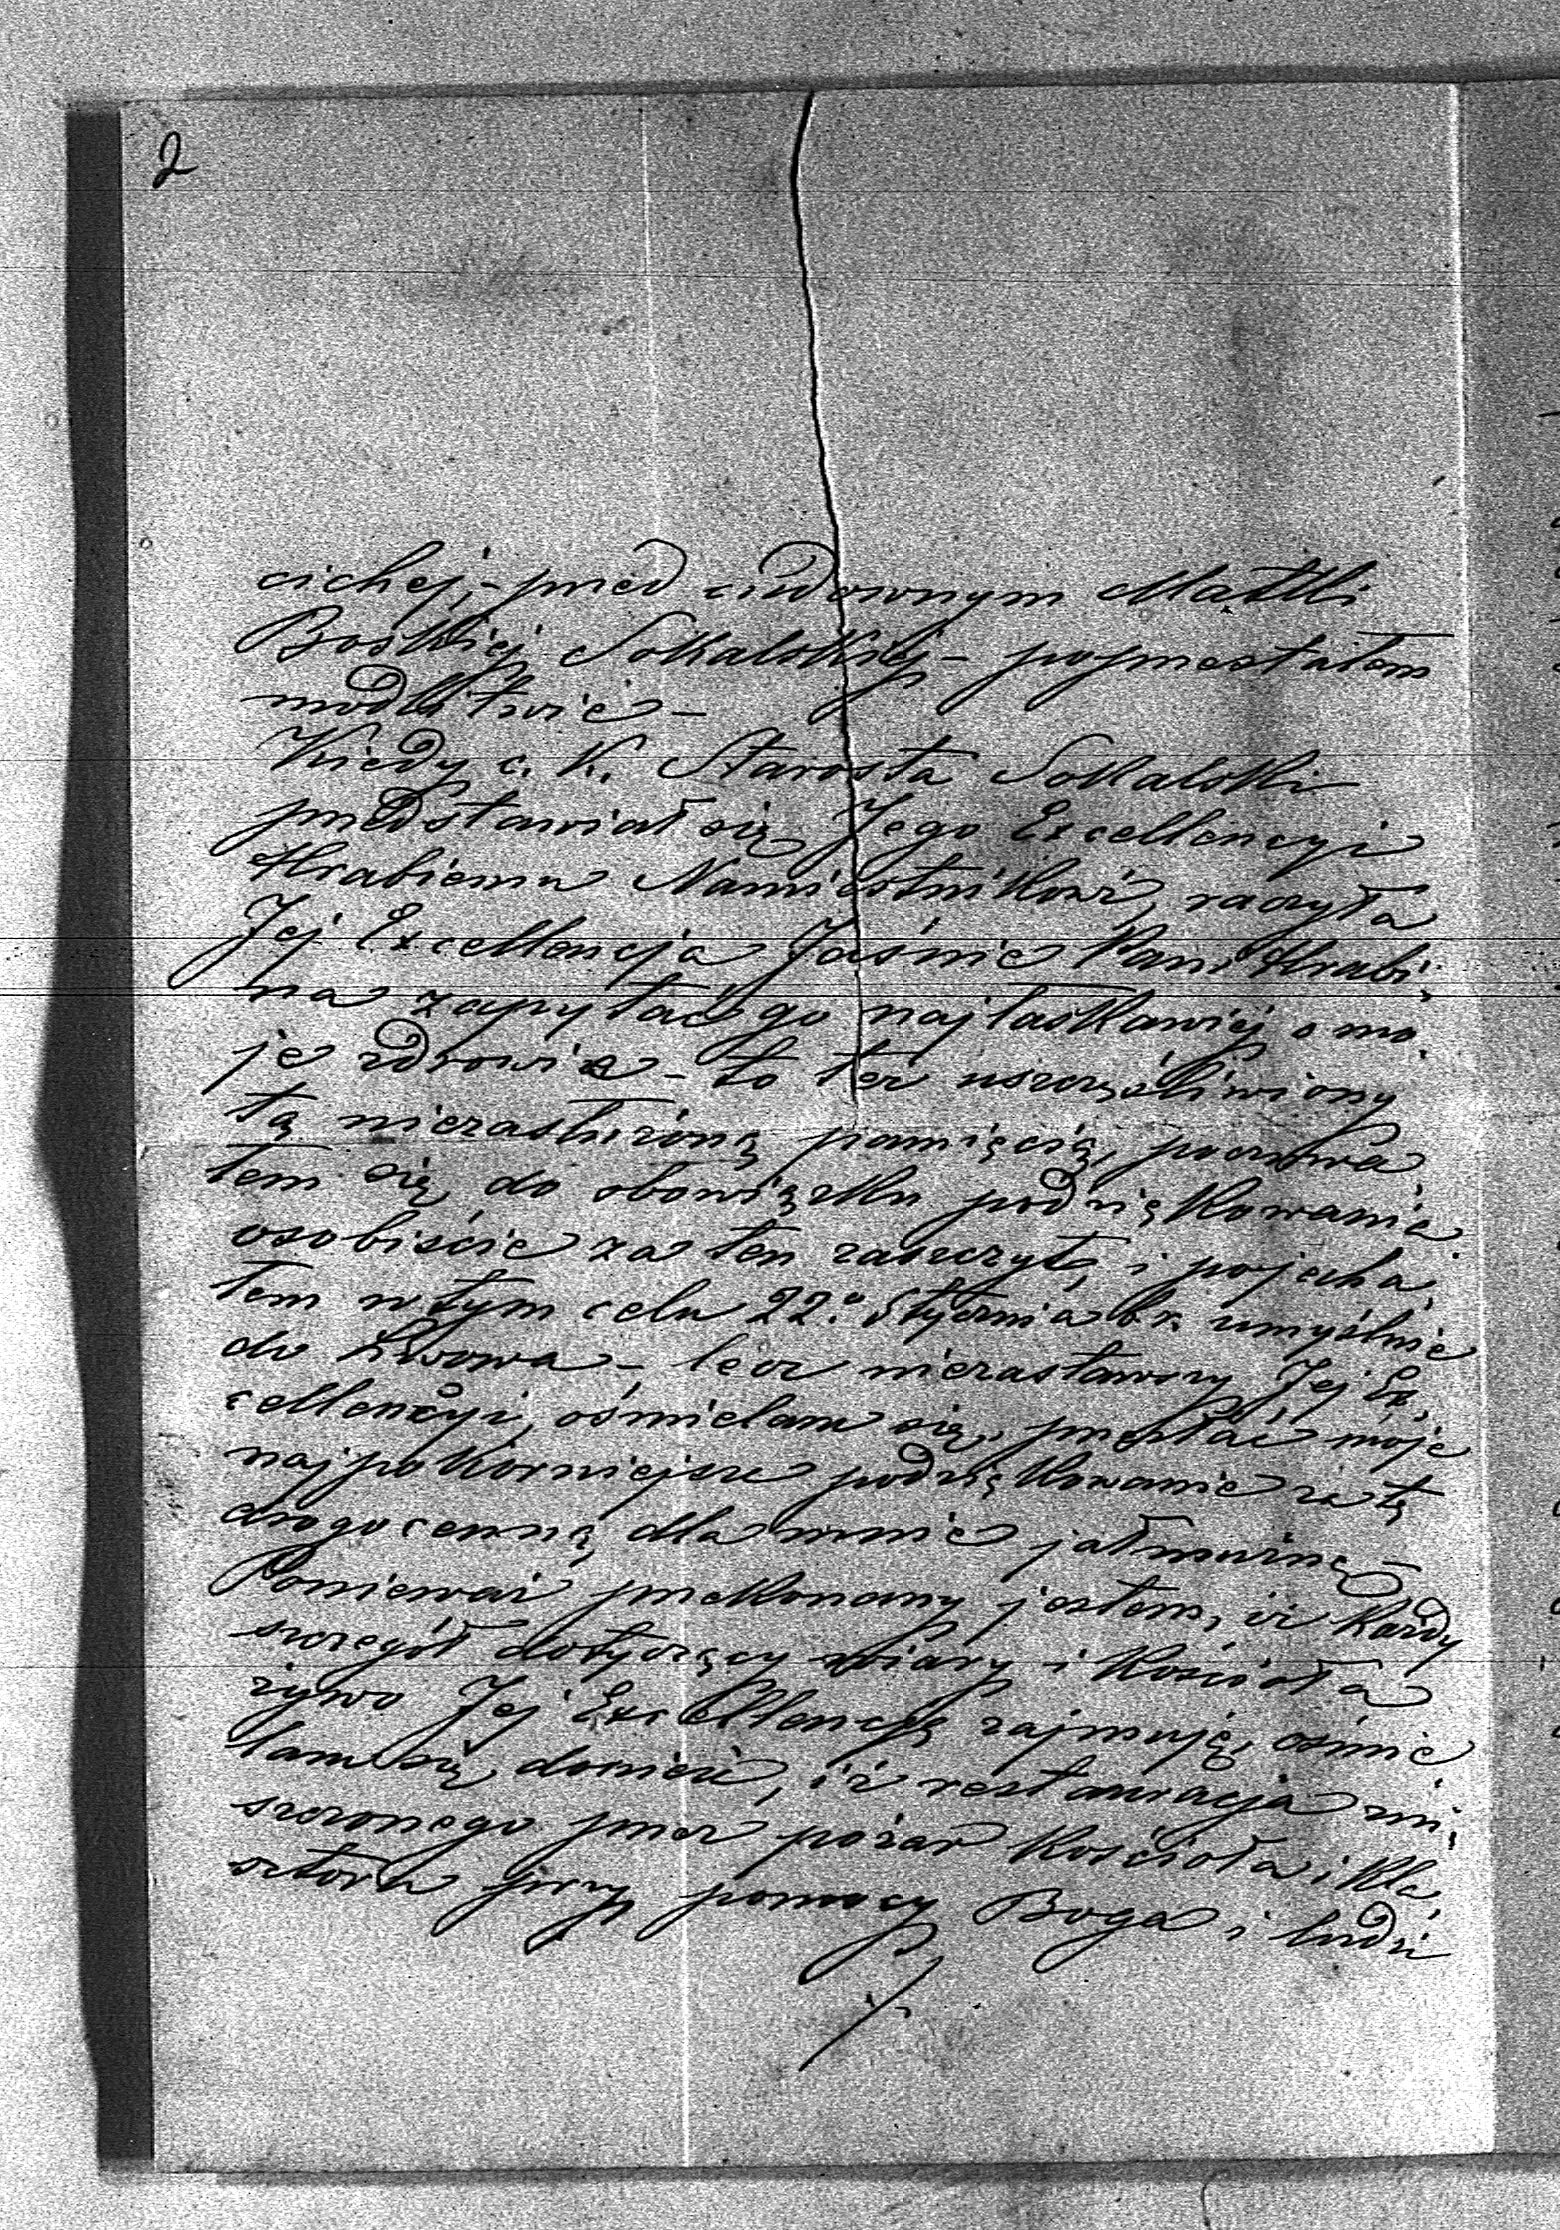 2
cichej, - przed cudownym Matki
Boskiej Sokalskiej - poprzestałem
modlitwie -
Kiedy c. k. Starosta Sokalski
przedstawiał się Jego Excellencyi
Hrabiemu Namiestnikowi, raczyła
Jej Excellencja Jaśnie Pani Hrabi,
na zapytać go najłaskawiej o mo,
je zdrowie - to też uszczęśliwiony
tą niezasłużoną pamięcią, poczuwa
łem się do obowiązku podziękowania
osobiście za ten zaszczyt, i pojecha,
łem w tym celu 22.o Stycznia br. umyślnie
do Lwowa - lecz niezastawszy Jej Ex,
cellencyi, ośmielam się, przesłać moje
najpokorniejsze podziękowanie za tę
drogocenną dla mnie jałmużnę -
Ponieważ przekonany jestem, iż każdy
szczegół dotyczący wiary i kościoła
żywo Jej Excellencyę zajmuje, ośmie
lam się donieść, iż restauracja zni,
szczonego przez pożar kościoła i kla,
sztoru przy pomocy Boga i ludzi